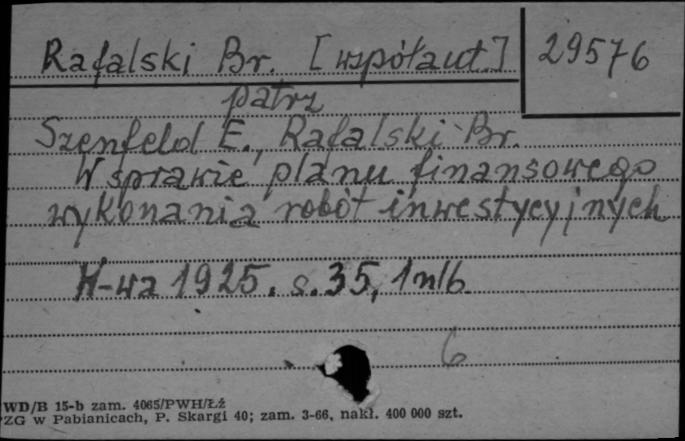 Rafalski Br. [współaut.] 29576
patrz
Szenfeld E., Rafalski Br.
W sprawie planu finansowego
wykonania robót inwestycyjnych
W-wa 1925. s. 35, 1 nlb.
6
WD/B 15-b zam. 4065/PWH/Łź
PZG w Pabianicach, P. Skargi 40; zam. 3-66, nakł. 400 000 szt.